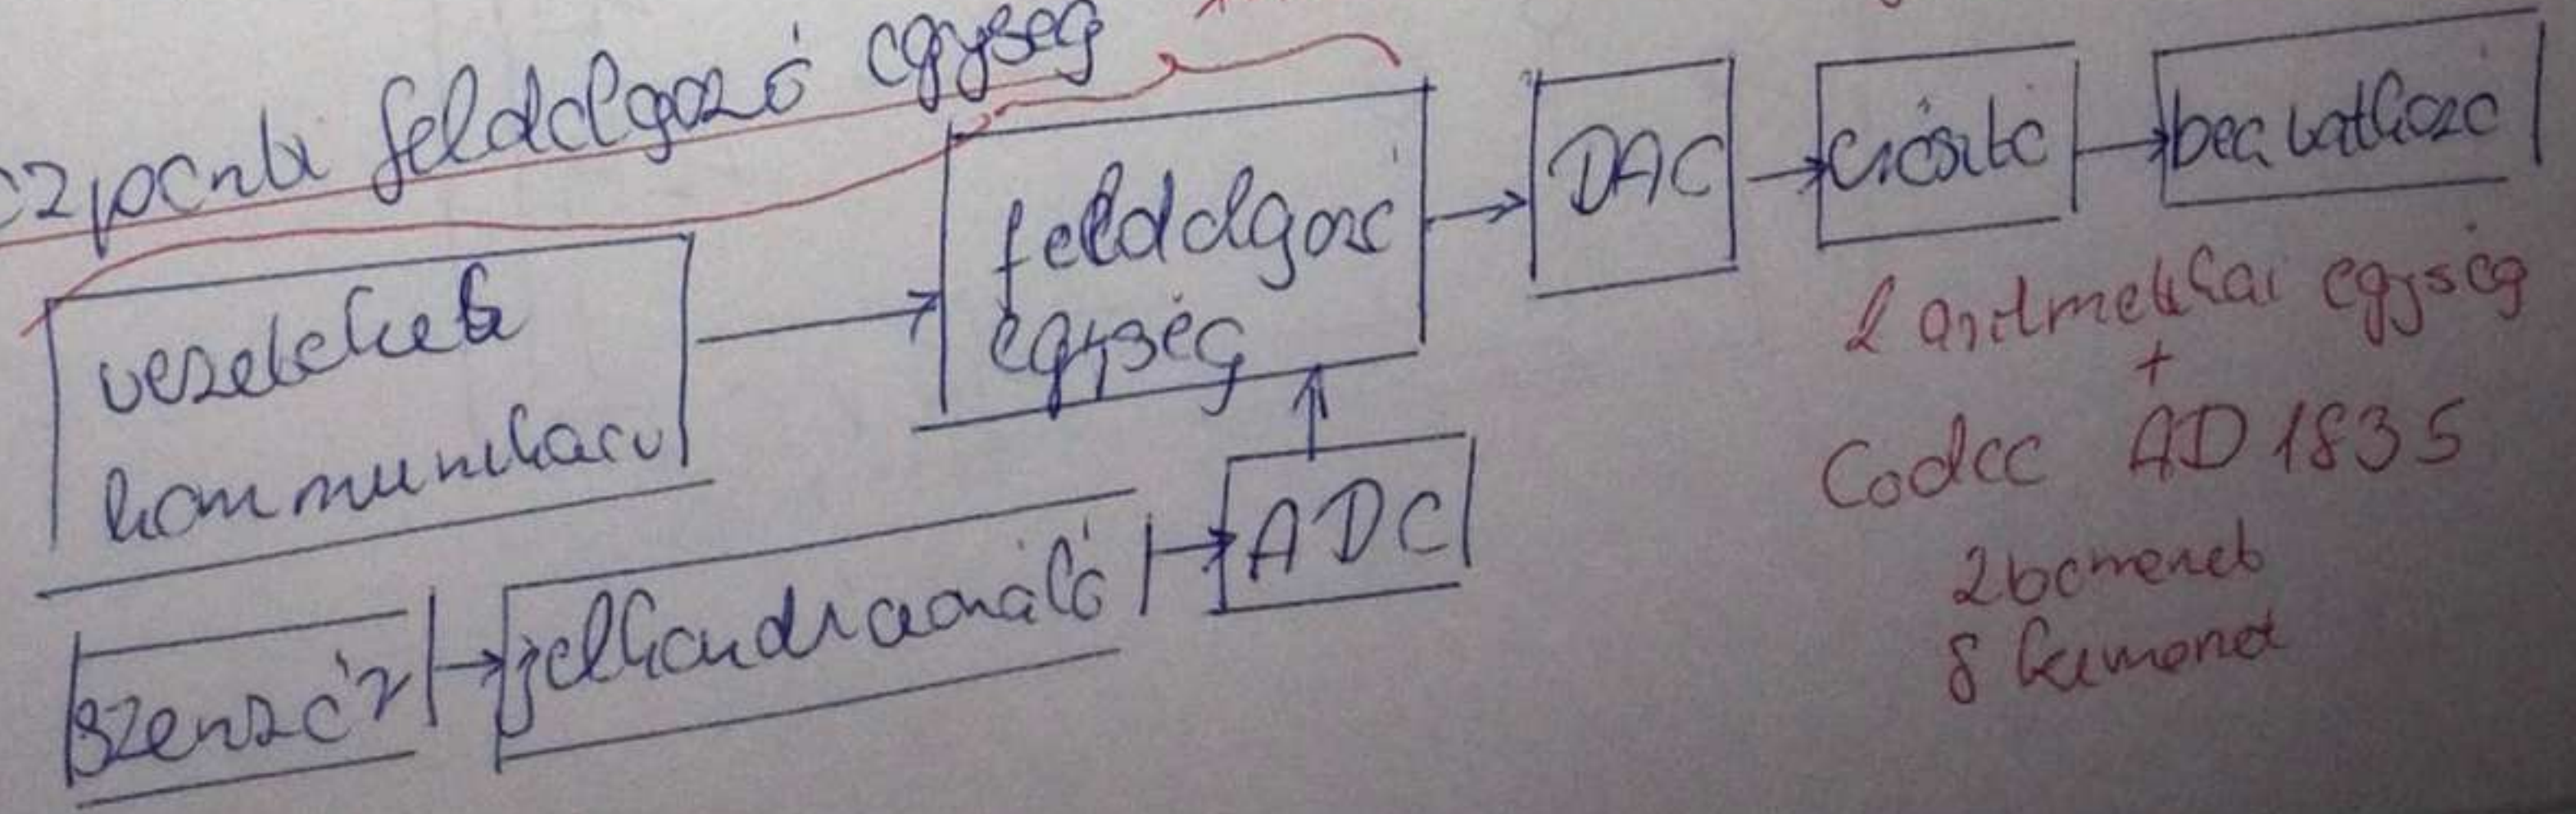 központi feldolgozó egység
vezeték nélküli
kommunikáció
feldolgozó
egység
DAC
erősítő
beavatkozó
szenzor
jelkondicionáló
ADC
2 aritmetikai egység
+
Codec AD 1835
2 bemenet
8 kimenet